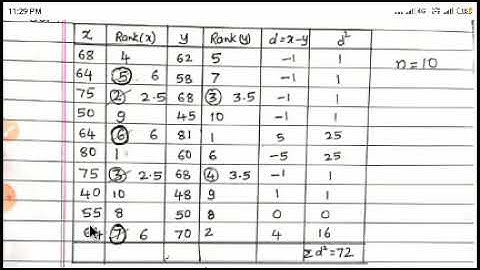 11:29 PM
x Rank(x) y Rank(y) d=x-y d²
68 4 62 5 -1 1
64 5 6 58 7 -1 1
75 2 2.5 68 3 3.5 -1 1
50 9 45 10 -1 1
64 6 6 81 1 5 25
80 1 60 6 -5 25
75 3 2.5 68 4 3.5 -1 1
40 10 48 9 1 1
55 8 50 8 0 0
64 7 6 70 2 4 16
Σd²=72
n=10